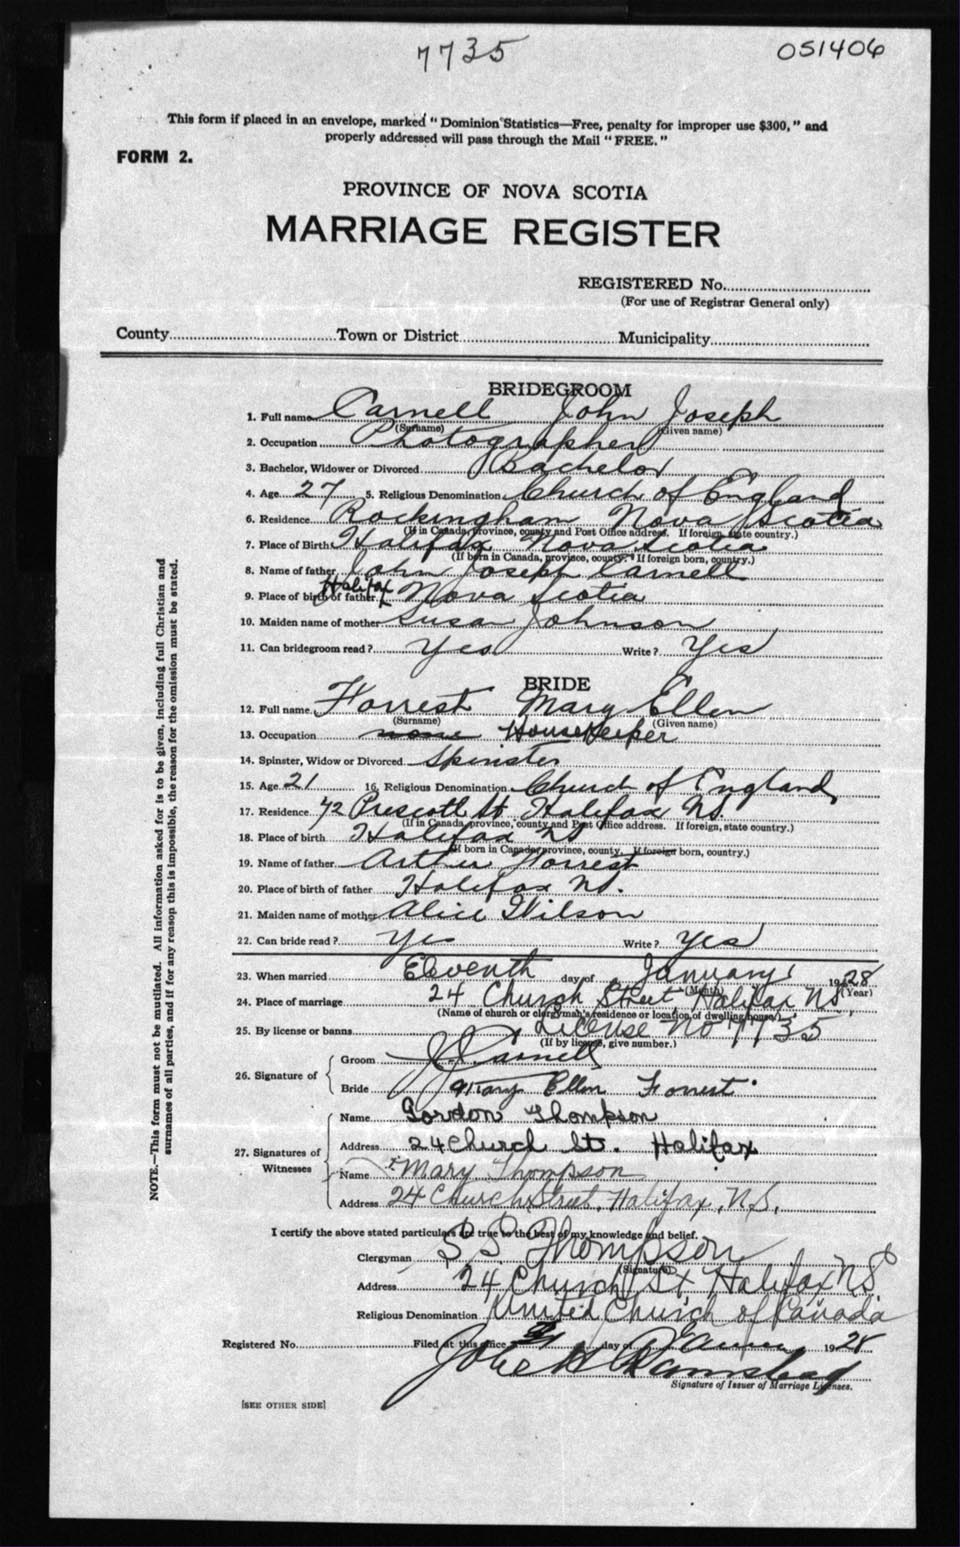 7735
051406
This form if placed in an envelope, marked "Dominion Statistics—Free, penalty for improper use $300," and
properly addressed will pass through the Mail "FREE."
FORM 2.
PROVINCE OF NOVA SCOTIA
MARRIAGE REGISTER
REGISTERED No.
(For use of Registrar General only)
County Town or District Municipality
BRIDEGROOM
1. Full name Carnell John Joseph
(Surname) (Given name)
2. Occupation Photographer
3. Bachelor, Widower or Divorced Bachelor
4. Age 27 5. Religious Denomination Church of England
6. Residence Rockingham Nova Scotia
(If in Canada, province, county and Post Office address. If foreign, state country.)
7. Place of Birth Halifax Nova Scotia
(If born in Canada, province, county. If foreign born, country.)
8. Name of father John Joseph Carnell
9. Place of birth of father Halifax Nova Scotia
10. Maiden name of mother Susan Johnson
11. Can bridegroom read? Yes Write? Yes
BRIDE
12. Full name Forrest Mary Ellen
(Surname) (Given name)
13. Occupation none HouseKeeper
14. Spinster, Widow or Divorced Spinster
15. Age 21 16. Religious Denomination Church of England
17. Residence 72 Prescott St Halifax NS.
(If in Canada, province, county and Post Office address. If foreign, state country.)
18. Place of birth Halifax NS
(If born in Canada, province, county. If foreign born, country.)
19. Name of father Arthur Forrest
20. Place of birth of father Halifax NS.
21. Maiden name of mother Alice Wilson
22. Can bride read? Yes Write? Yes
23. When married Eleventh day of January 1928
(Month) (Year)
24. Place of marriage 24 Church Street Halifax NS.
(Name of church or clergyman's residence or location of dwelling house)
25. By license or banns License No 7735
(If by license, give number.)
26. Signature of
Groom J J Carnell
Bride Mary Ellen Forrest
27. Signatures of Witnesses
Name Gordon Thompson
Address 24 Church St. Halifax
Name Mary Thompson
Address 24 Church Street, Halifax, N.S.
I certify the above stated particulars are true to the best of my knowledge and belief.
Clergyman Thompson
(Signature)
Address 24 Church St Halifax NS
Religious Denomination United Church of Canada
Registered No. Filed at this office day of 1928
Signature of Issuer of Marriage Licenses.
[SEE OTHER SIDE]
NOTE.—This form must not be mutilated. All information asked for is to be given, including full Christian and
surnames of all parties, and if for any reason this is impossible, the reason for the omission must be stated.